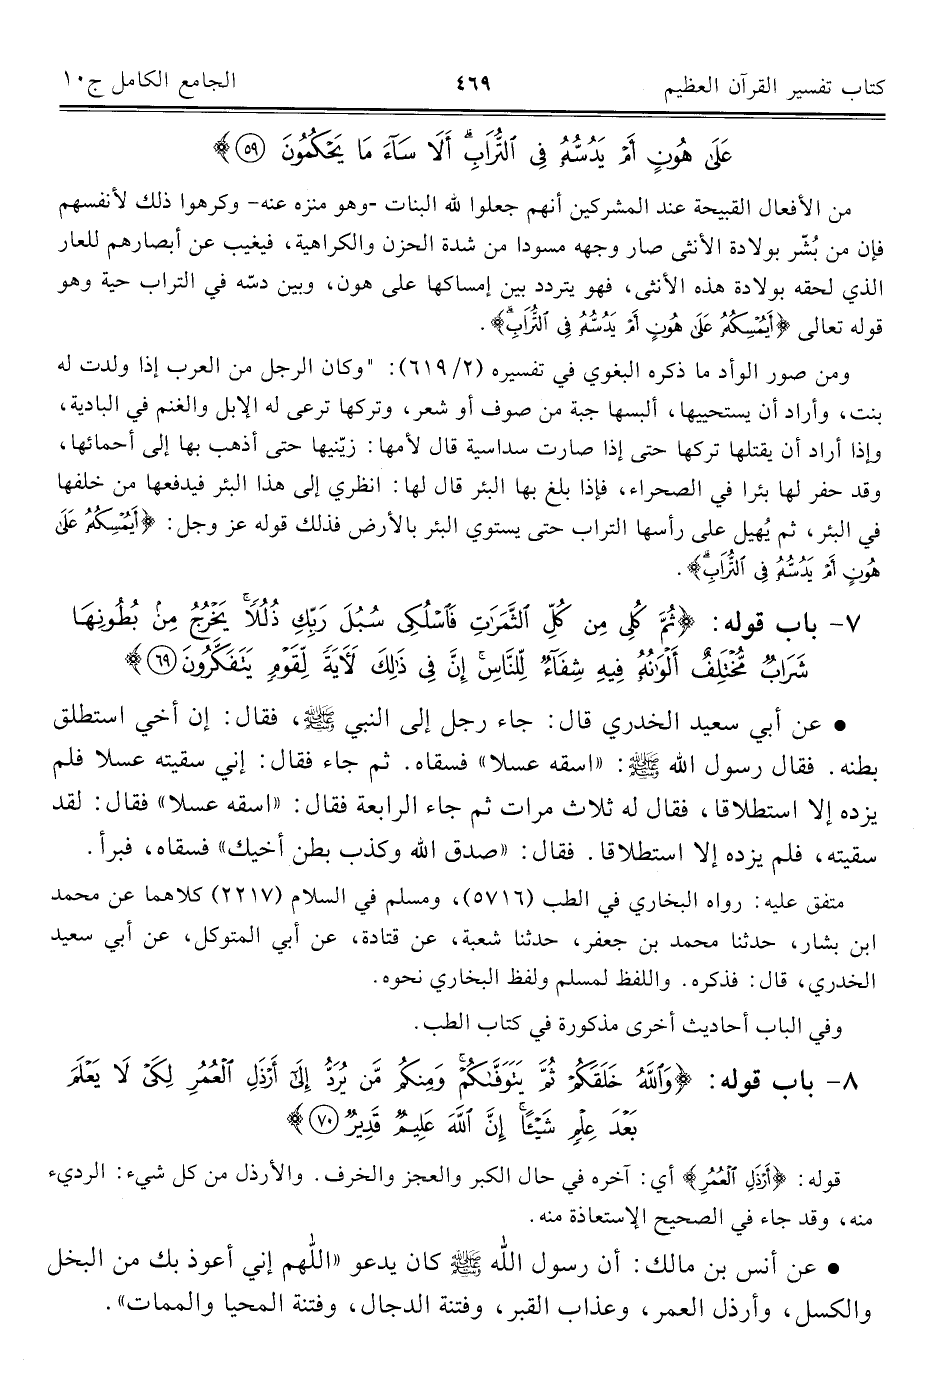 كتاب تفسير القرآن العظيم ٤٦٩ الجامع الكامل ج١٠
عَلَىٰ هُونٍ أَمْ يَدُسُّهُۥ فِى ٱلتُّرَابِ ۗ أَلَا سَآءَ مَا يَحْكُمُونَ ٥٩﴾
من الأفعال القبيحة عند المشركين أنهم جعلوا لله البنات -وهو منزه عنه- وكرهوا ذلك لأنفسهم
فإن من بُشّر بولادة الأنثى صار وجهه مسودا من شدة الحزن والكراهية، فيغيب عن أبصارهم للعار
الذي لحقه بولادة هذه الأنثى، فهو يتردد بين إمساكها على هون، وبين دسّه في التراب حية وهو
قوله تعالى ﴿أَيُمْسِكُهُۥ عَلَىٰ هُونٍ أَمْ يَدُسُّهُۥ فِى ٱلتُّرَابِ ۗ﴾.
ومن صور الوأد ما ذكره البغوي في تفسيره (٢/ ٦١٩): "وكان الرجل من العرب إذا ولدت له
بنت، وأراد أن يستحييها، ألبسها جبة من صوف أو شعر، وتركها ترعى له الإبل والغنم في البادية،
وإذا أراد أن يقتلها تركها حتى إذا صارت سداسية قال لأمها: زيّنيها حتى أذهب بها إلى أحمائها،
وقد حفر لها بئرا في الصحراء، فإذا بلغ بها البئر قال لها: انظري إلى هذا البئر فيدفعها من خلفها
في البئر، ثم يُهيل على رأسها التراب حتى يستوي البئر بالأرض فذلك قوله عز وجل: ﴿أَيُمْسِكُهُۥ عَلَىٰ
هُونٍ أَمْ يَدُسُّهُۥ فِى ٱلتُّرَابِ ۗ﴾.
٧- باب قوله: ﴿ثُمَّ كُلِى مِن كُلِّ ٱلثَّمَرَٰتِ فَٱسْلُكِى سُبُلَ رَبِّكِ ذُلُلًا ۚ يَخْرُجُ مِنۢ بُطُونِهَا
شَرَابٌ مُّخْتَلِفٌ أَلْوَٰنُهُۥ فِيهِ شِفَآءٌ لِّلنَّاسِ ۗ إِنَّ فِى ذَٰلِكَ لَءَايَةً لِّقَوْمٍ يَتَفَكَّرُونَ ٦٩﴾
• عن أبي سعيد الخدري قال: جاء رجل إلى النبي ﷺ، فقال: إن أخي استطلق
بطنه. فقال رسول الله ﷺ: «اسقه عسلا» فسقاه. ثم جاء فقال: إني سقيته عسلا فلم
يزده إلا استطلاقا، فقال له ثلاث مرات ثم جاء الرابعة فقال: «اسقه عسلا» فقال: لقد
سقيته، فلم يزده إلا استطلاقا. فقال: «صدق الله وكذب بطن أخيك» فسقاه، فبرأ.
متفق عليه: رواه البخاري في الطب (٥٧١٦)، ومسلم في السلام (٢٢١٧) كلاهما عن محمد
ابن بشار، حدثنا محمد بن جعفر، حدثنا شعبة، عن قتادة، عن أبي المتوكل، عن أبي سعيد
الخدري، قال: فذكره. واللفظ لمسلم ولفظ البخاري نحوه.
وفي الباب أحاديث أخرى مذكورة في كتاب الطب.
٨- باب قوله: ﴿وَٱللَّهُ خَلَقَكُمْ ثُمَّ يَتَوَفَّىٰكُمْ ۚ وَمِنكُم مَّن يُرَدُّ إِلَىٰٓ أَرْذَلِ ٱلْعُمُرِ لِكَىْ لَا يَعْلَمَ
بَعْدَ عِلْمٍ شَيْـًٔا ۚ إِنَّ ٱللَّهَ عَلِيمٌ قَدِيرٌ ٧٠﴾
قوله: ﴿أَرْذَلِ ٱلْعُمُرِ﴾ أي: آخره في حال الكبر والعجز والخرف. والأرذل من كل شيء: الرديء
منه، وقد جاء في الصحيح الإستعاذة منه.
• عن أنس بن مالك: أن رسول الله ﷺ كان يدعو «اللّهم إني أعوذ بك من البخل
والكسل، وأرذل العمر، وعذاب القبر، وفتنة الدجال، وفتنة المحيا والممات».